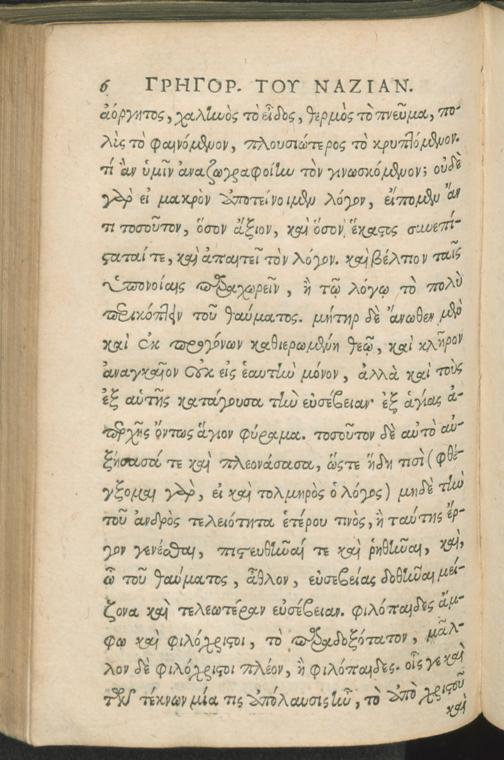 6 ΓΡΗΓΟΡ. ΤΟΥ ΝΑΖΙΑΝ.
ἀόργητος, χαλινὸς τὸ εἶδος, θερμὸς τὸ πνεῦμα, πο-
λὺς τὸ φαινόμενον, πλουσιώτερος τὸ κρυπτόμενον.
τί ἂν ὑμῖν ἀναζωγραφοίην τὸν γινωσκόμενον; οὐδὲ
γὰρ εἰ μακρὸν ἀποτείνοιμεν λόγον, εἴποιμεν ἄν
τι τοσοῦτον, ὅσον ἄξιον, καὶ ὅσον ἕκαστος συνεπί-
σταταί τε, καὶ ἀπαιτεῖ τὸν λόγον. καὶ βέλτιον ταῖς
ὑπονοίαις παραχωρεῖν, ἢ τῷ λόγῳ τὸ πολὺ
περικόπτειν τοῦ θαύματος. μήτηρ δὲ ἄνωθεν μὲν
καὶ ἐκ προγόνων καθιερωμένη θεῷ, καὶ κλῆρον
ἀναγκαῖον οὐκ εἰς ἑαυτὴν μόνον, ἀλλὰ καὶ τοὺς
ἐξ αὑτῆς κατάγουσα τὴν εὐσέβειαν· ἐξ ἁγίας ἀ-
παρχῆς ὄντως ἅγιον φύραμα. τοσοῦτον δὲ αὐτὸ αὐ-
ξήσασά τε καὶ πλεονάσασα, ὥστε ἤδη τισὶ (φθέ-
γξομαι γὰρ, εἰ καὶ τολμηρὸς ὁ λόγος) μηδὲ τὴν
τοῦ ἀνδρὸς τελειότητα ἑτέρου τινὸς, ἢ ταύτης ἔρ-
γον γενέσθαι, πιστευθῆναί τε καὶ ῥηθῆναι, καὶ,
ὢ τοῦ θαύματος, ἆθλον, εὐσεβείας δοθῆναι μεί-
ζονα καὶ τελεωτέραν εὐσέβειαν. φιλόπαιδες ἄμ-
φω καὶ φιλόχριστοι, τὸ παραδοξότατον, μᾶλ-
λον δὲ φιλόχριστοι πλέον, ἢ φιλόπαιδες. οἷς γε καὶ
τῶν τέκνων μία τις ἀπόλαυσις ἦν, τὸ ἀπὸ χριστοῦ
καὶ